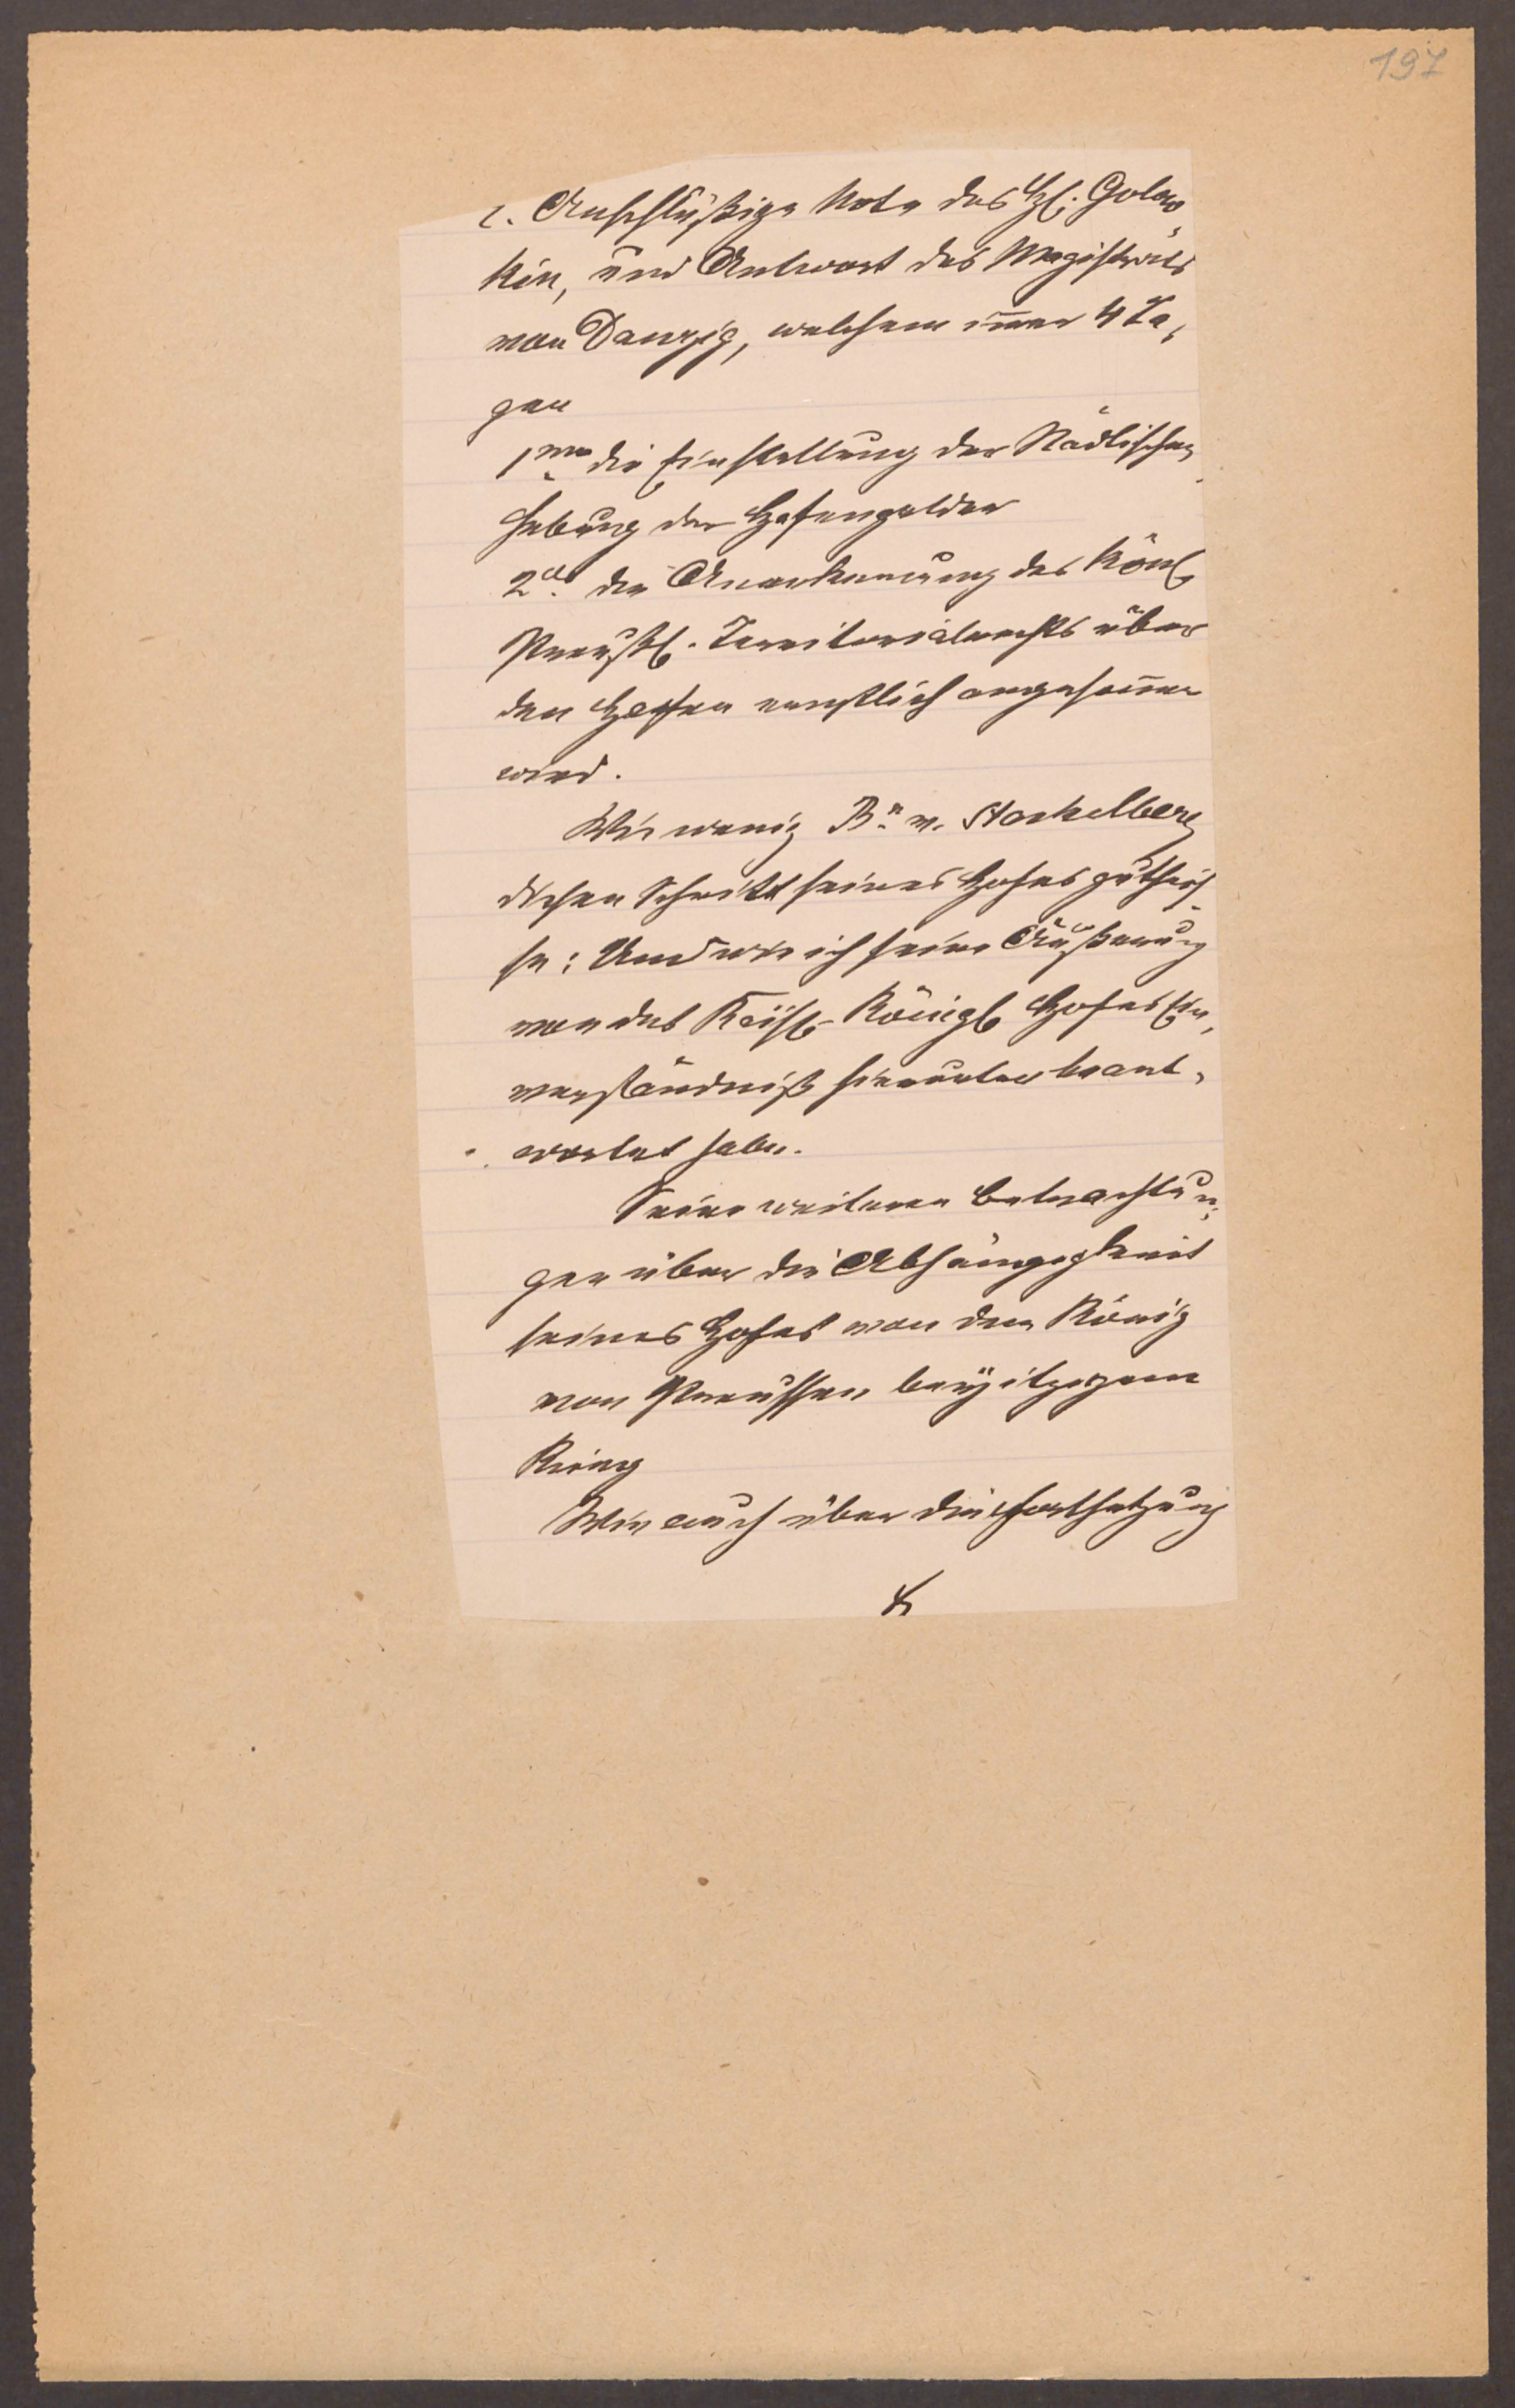 197
c. Anschlüßige Note des H. Golow
kin, und Antwort des Magistrats
von Danzig, welchem inner 4 Ta,
gen
1mo die Einstellung der Städtischen
Hebung der Hafengelder
2do die Anerkennung des Königl
Preußl. Territorialrechts über
den Hafen ernstlich angesonnen
wird.
Wie wenig Bn v. Stackelberg
diesen Schritt seines Hofes gutheis
se: Und wie ich seine Äußerung
von des Kaisl. Königl Hofes Ein,
verständniß hierunter beant,
wortet habe.
Seine weiteren Betrachtun,
gen über die Abhängigkeit
seines Hofes von dem König
von Preussen bey itzigem
Krieg
Wie auch über die Fortsetzung